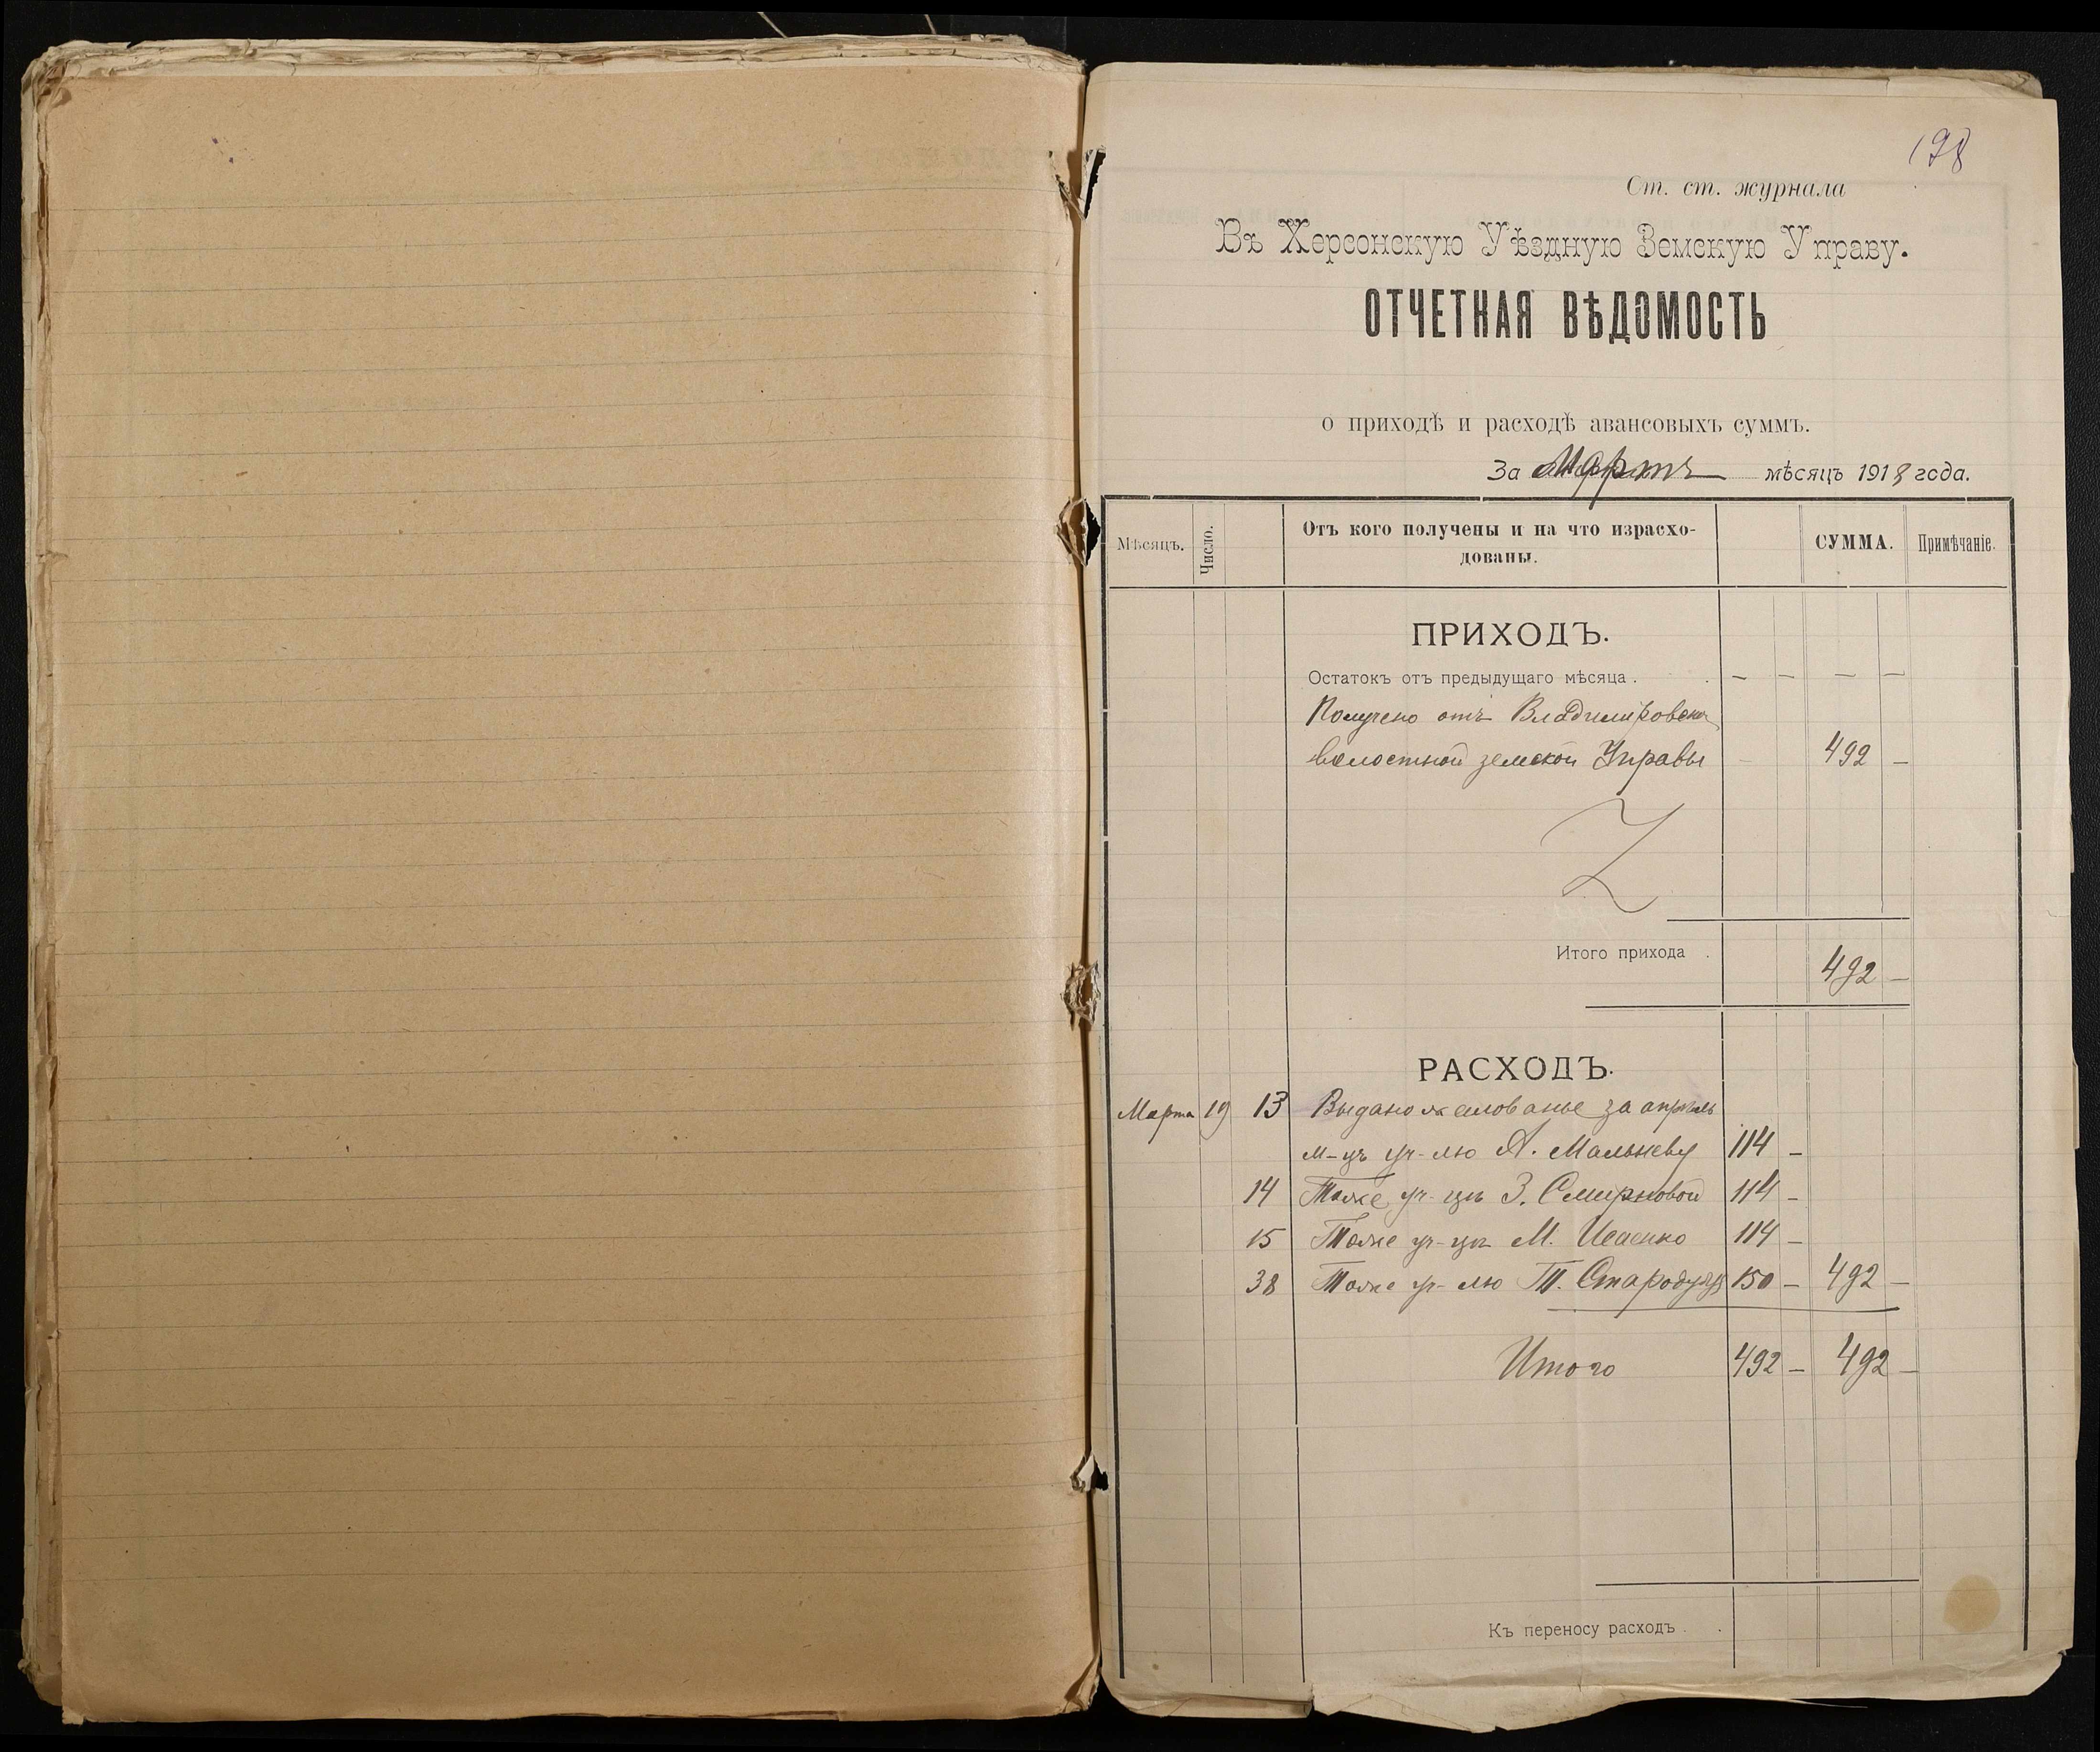 198
Ст. ст. журнала
Въ Херсонскую Уѣздную Земскую Управу.
ОТЧЕТНАЯ ВѢДОМОСТЬ
о приходѣ и расходѣ авансовыхъ суммъ.
За Мартъ мѣсяцъ 1918 года.
Мѣсяцъ. Число. Отъ кого получены и на что израсхо- СУММА. Примѣчаніе.
дованы.
ПРИХОДЪ.
Остатокъ отъ предыдущаго мѣсяца . . — — — —
Получено отъ Владимировской
волостной земской Управы 492 —
Итого прихода . 492 —
РАСХОДЪ.
Марта 19 13 Выдано жалованье за апрѣль
м-цъ уч-лю А. Мальневу 114 —
14 Тоже уч-цѣ З. Смирновой 114 —
15 Тоже уч-цѣ М. Исаенко 114 —
38 Тоже уч-лю Т. Стародубу 150 — 492 —
Итого 492 — 492 —
Къ переносу расходъ . .